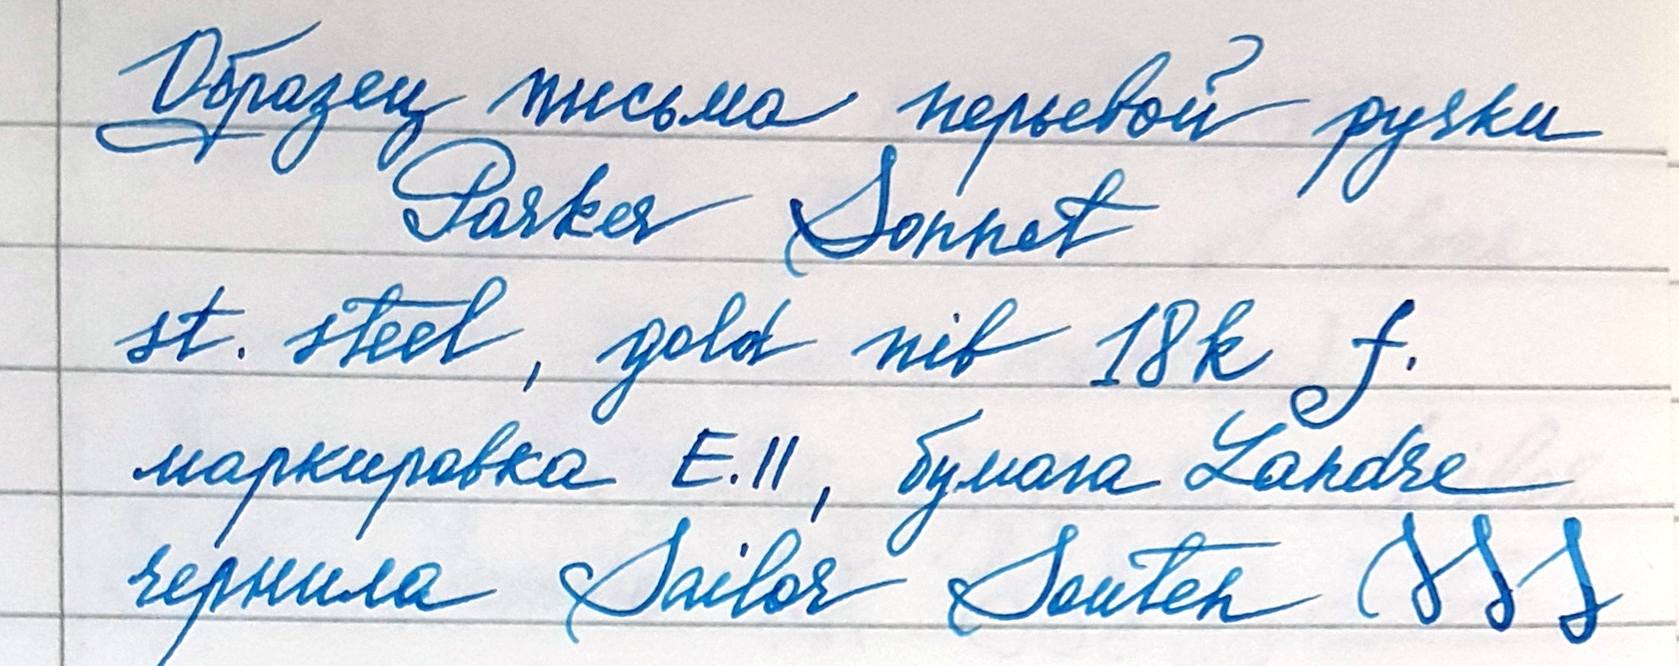 Образец письма перьевой ручки
Parker Sonnet
st. steel, gold nib 18k f.
маркировка E.II, бумага Landre
чернила Sailor Souten